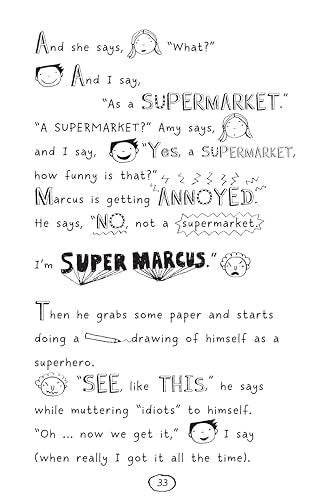 And she says, "What?"
And I say,
"As a SUPERMARKET."
"A SUPERMARKET?" Amy says,
and I say, "Yes, a SUPERMARKET,
how funny is that?"
Marcus is getting "ANNOYED."
He says, "NO, not a supermarket.
I'm SUPER MARCUS."
Then he grabs some paper and starts
doing a drawing of himself as a
superhero.
"SEE, like THIS," he says
while muttering "idiots" to himself.
"Oh ... now we get it," I say
(when really I got it all the time).
33